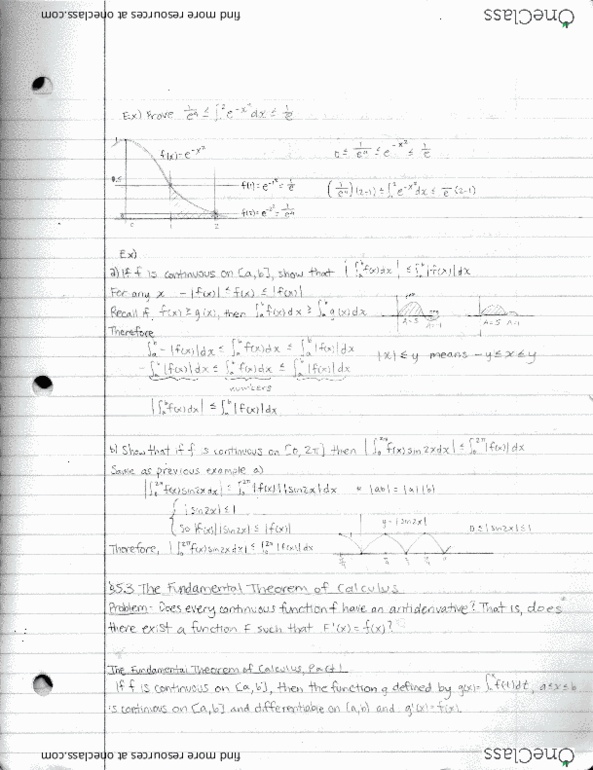 find more resources at oneclass.com
OneClass
Ex) Prove 1/e⁴ ≤ ∫₁² e^(-x²) dx ≤ 1/e
1
f(x) = e^(-x²)
0.5
f(1) = e^(-1²) = 1/e
f(2) = e^(-2²) = 1/e⁴
1 2
0 ≤ 1/e⁴ ≤ e^(-x²) ≤ 1/e
(1/e⁴)(2-1) ≤ ∫₁² e^(-x²) dx ≤ 1/e (2-1)
Ex)
a) If f is continuous on [a,b], show that |∫ₐᵇ f(x)dx| ≤ ∫ₐᵇ |f(x)|dx
For any x -|f(x)| ≤ f(x) ≤ |f(x)|
Recall if, f(x) ≥ g(x), then ∫ₐᵇ f(x)dx ≥ ∫ₐᵇ g(x)dx
A=5 A=1 A=5 A=1
Therefore
∫ₐᵇ -|f(x)|dx ≤ ∫ₐᵇ f(x)dx ≤ ∫ₐᵇ |f(x)|dx
|x| ≤ y means -y ≤ x ≤ y
-∫ₐᵇ |f(x)|dx ≤ ∫ₐᵇ f(x)dx ≤ ∫ₐᵇ |f(x)|dx
numbers
|∫ₐᵇ f(x)dx| ≤ ∫ₐᵇ |f(x)|dx
b) Show that if f is continuous on [0, 2π] then |∫₀²π f(x) sin2x dx| ≤ ∫₀²π |f(x)| dx
Same as previous example a)
|∫₀²π f(x) sin2x dx| ≤ ∫₀²π |f(x)| |sin2x| dx * |ab| = |a||b|
{ |sin2x| ≤ 1
So |f(x)||sin2x| ≤ |f(x)|
y = |sin2x|
0 ≤ |sin2x| ≤ 1
Therefore, |∫₀²π f(x) sin2x dx| ≤ ∫₀²π |f(x)| dx
§5.3 The Fundamental Theorem of Calculus
Problem - Does every continuous function f have an antiderivative? That is, does
there exist a function F such that F'(x) = f(x)?
The Fundamental Theorem of Calculus, Part 1
If f is continuous on [a, b], then the function g defined by g(x) = ∫ₐˣ f(t)dt, a ≤ x ≤ b
is continuous on [a, b] and differentiable on (a, b) and g'(x) = f(x).
find more resources at oneclass.com
OneClass